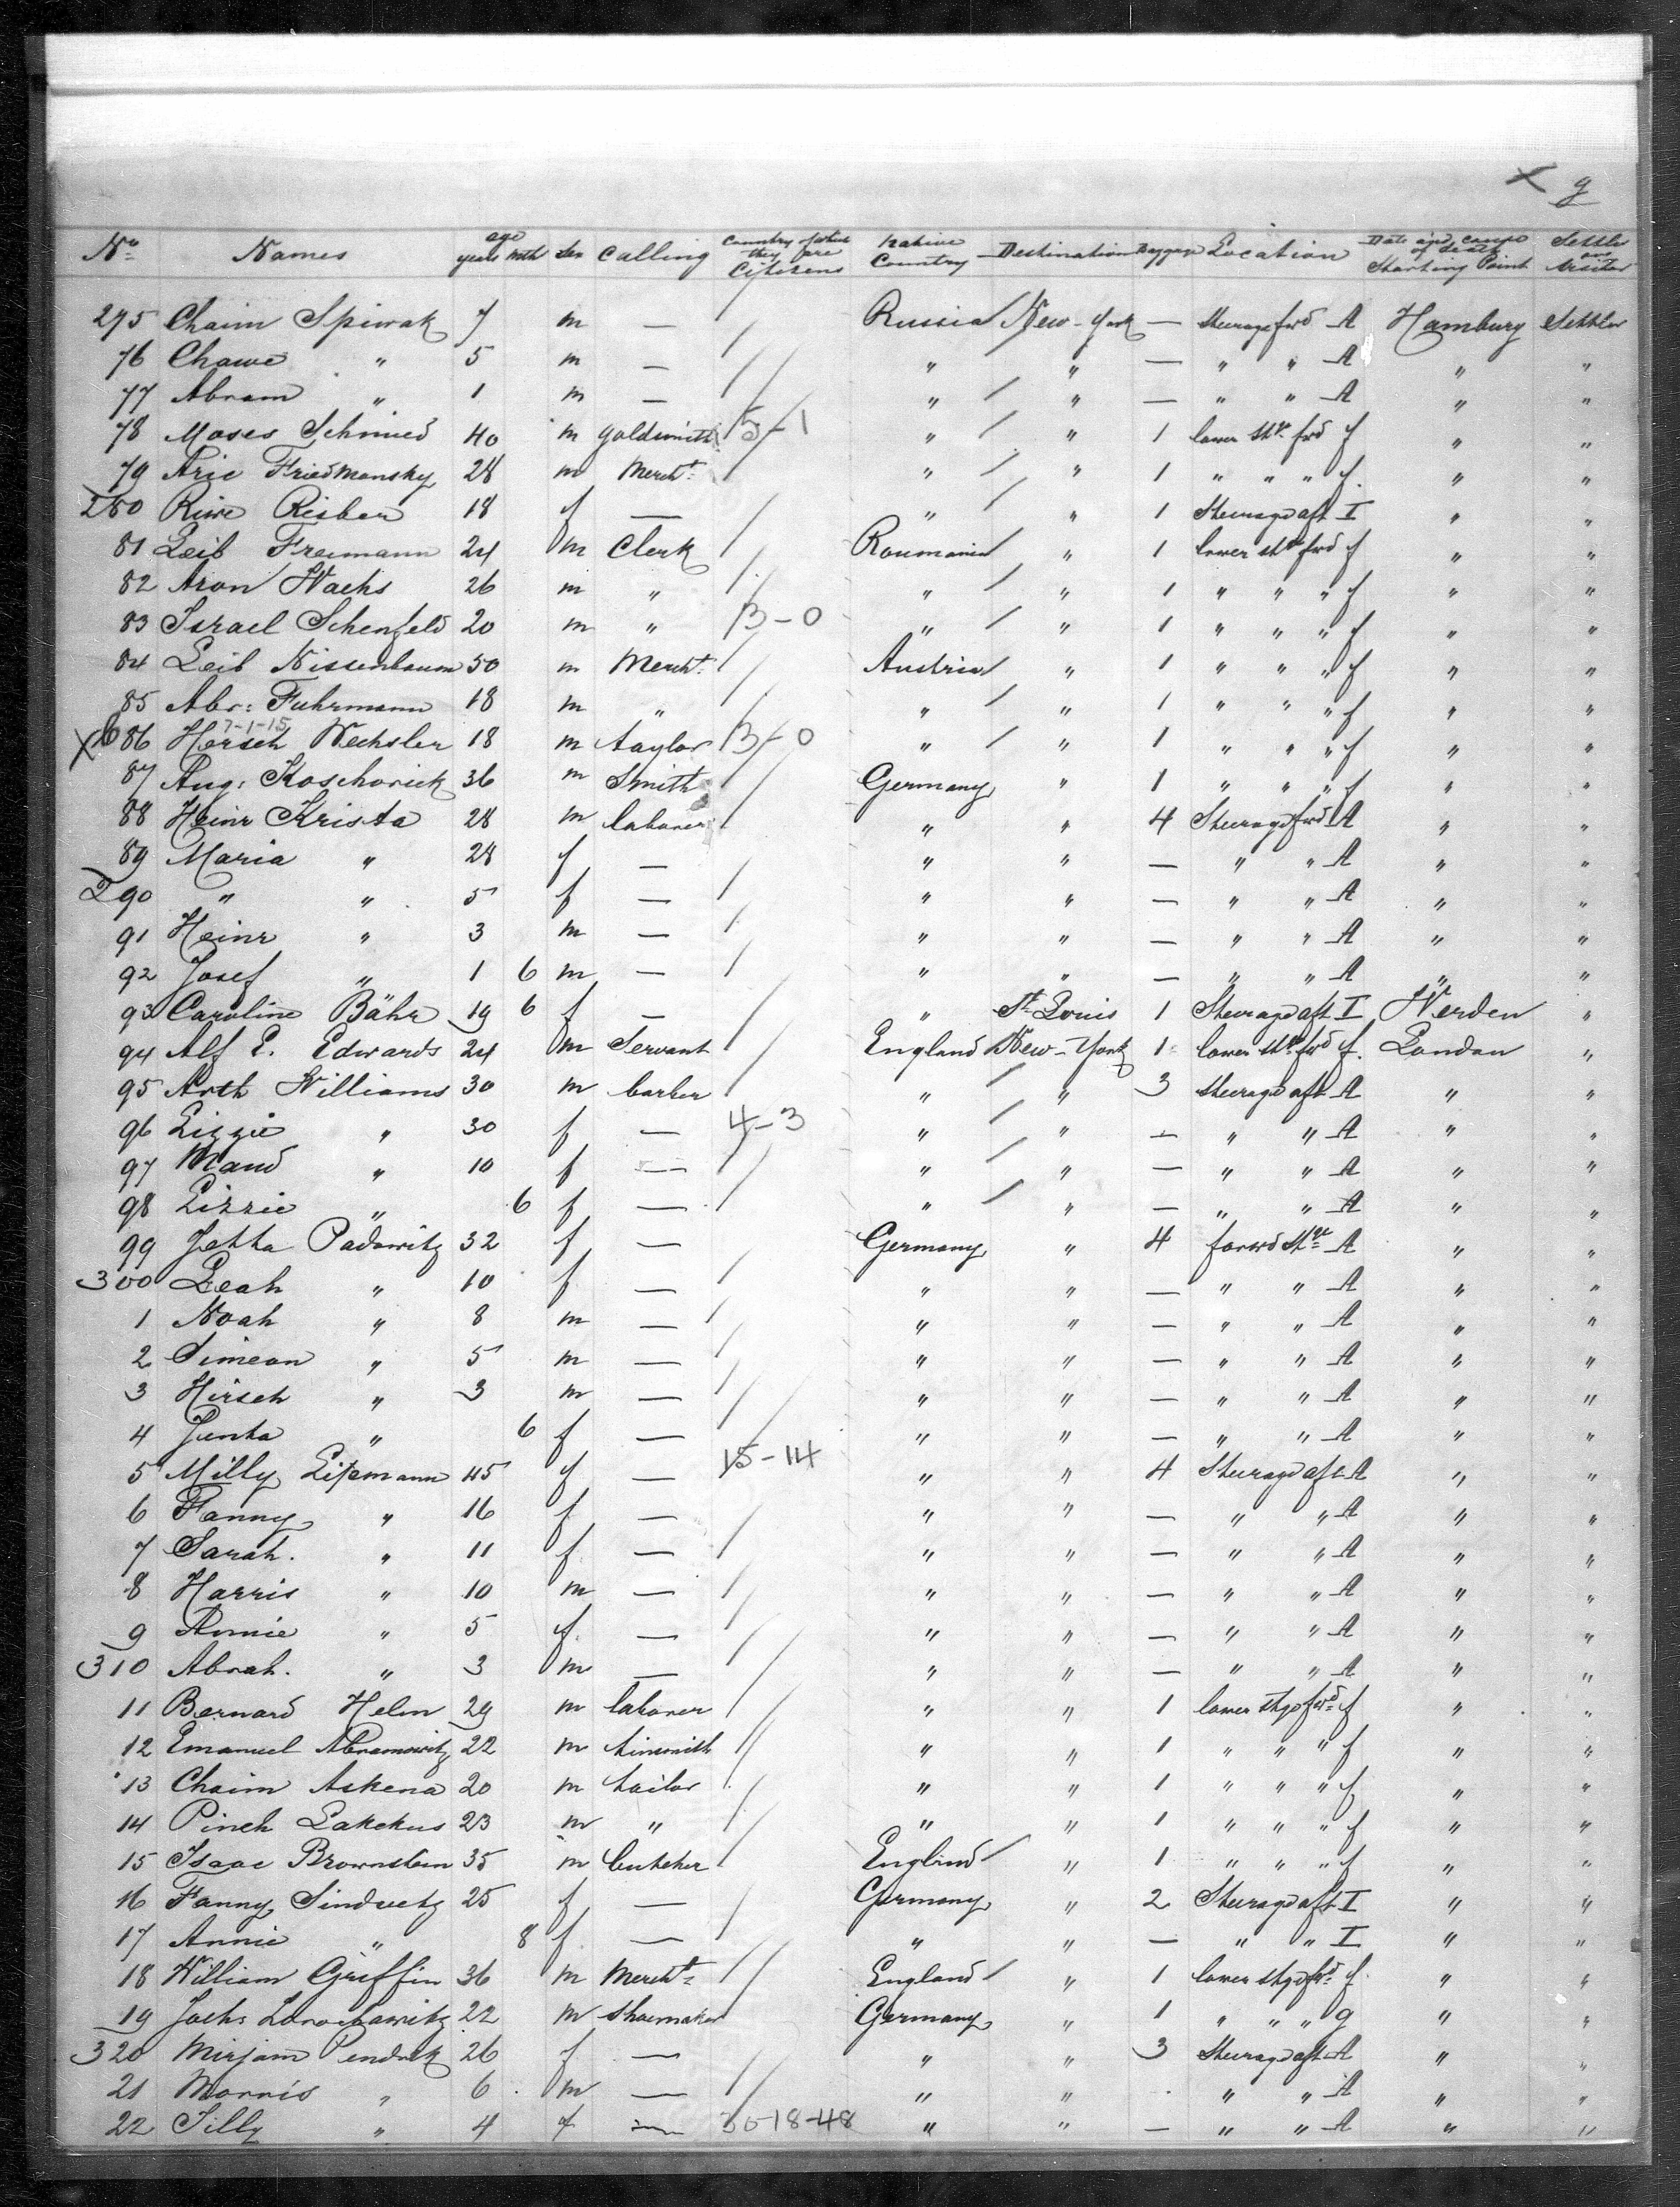 x 9
No Names age years mth Sex Calling Country of which they are Citizens Native Country Destination Baggage Location Date and cause of death Starting Point Settler or Visitor
275 Chaim Spiwak 7 m — Russia New-York — Steerage fwd A Hamburg Settler
76 Chawe " 5 m — " " — " " A " "
77 Abram " 1 m — " " — " " A " "
78 Moses Schmied 40 m goldsmith 5-1 " " 1 lower stge fwd f " "
79 Aric Friedmansky 28 m Mercht " " 1 " " " f. " "
280 Riwe Reiber 18 f — " " 1 Steerage aft I " "
81 Leib Freimann 24 m Clerk Roumania " 1 lower stge fwd f " "
82 Aron Wachs 26 m " " " 1 " " " f " "
83 Israel Schenfeld 20 m " 3-0 " " 1 " " " f " "
84 Leib Nissenbaum 50 m Mercht Austria " 1 " " " f " "
85 Abr: Fuhrmann 18 m " " " 1 " " " f " "
7-1-15
X 86 Hersch Wechsler 18 m taylor 3-0 " " 1 " " " f " "
87 Aug: Koschorick 36 m Smith Germany " 1 " " " f " "
88 Heinr Krista 28 m laborer " " 4 Steerage fwd A " "
89 Maria " 28 f — " " — " " A " "
290 " " 5 f — " " — " " A " "
91 Heinr " 3 m — " " — " " A " "
92 Josef " 1 6 m — " " — " " A " "
93 Caroline Bähr 19 6 f — " St Louis 1 Steerage aft I Werden "
94 Alf E. Edwards 24 m Servant England New-York 1 lower stge fwd f. London "
95 Arth Williams 30 m barber " " 3 steerage aft A " "
96 Lizzie " 30 f — 4-3 " " — " " A " "
97 Maud " 10 f — " " — " " A " "
98 Lizzie " 6 f — " " — " " A " "
99 Jetta Padowitz 32 f — Germany " 4 forwd stge A " "
300 Leah " 10 f — " " — " " A " "
1 Noah " 8 m — " " — " " A " "
2 Simeon " 5 m — " " — " " A " "
3 Hirsch " 3 m — " " — " " A " "
4 Junta " 6 f — " " — " " A " "
5 Milly Lipmann 45 f — 15-14 " " 4 Steerage aft A " "
6 Fanny " 16 f — " " — " " A " "
7 Sarah. " 11 f — " " — " " A " "
8 Harris " 10 m — " " — " " A " "
9 Annie " 5 f. — " " — " " A " "
310 Abrah. " 3 m — " " — " " A " "
11 Bernard Helm 29 m laborer " " 1 lower stge fwd f " "
12 Emanuel Abramowitz 22 m tinsmith " " 1 " " " f " "
13 Chaim Askena 20 m tailor " " 1 " " " f " "
14 Pinch Lakekus 23 m " " " 1 " " " f " "
15 Isaac Brownstein 35 m butcher England " 1 " " " f " "
16 Fanny Sindseetz 25 f — Germany " 2 Steerage aft I " "
17 Annie " 8 f — " " — " " I " "
18 William Griffin 36 m Mercht England " 1 lower stge fwd f. " "
19 Jach: 22 m shoemaker Germany " 1 " " " g " "
320 Mirjam Pendrik 26 f — " " 3 Steerage aft A " "
21 Morris " 6 m — " " " " A " "
22 Silly " 4 f — 30-18-48 " " — " " A " "